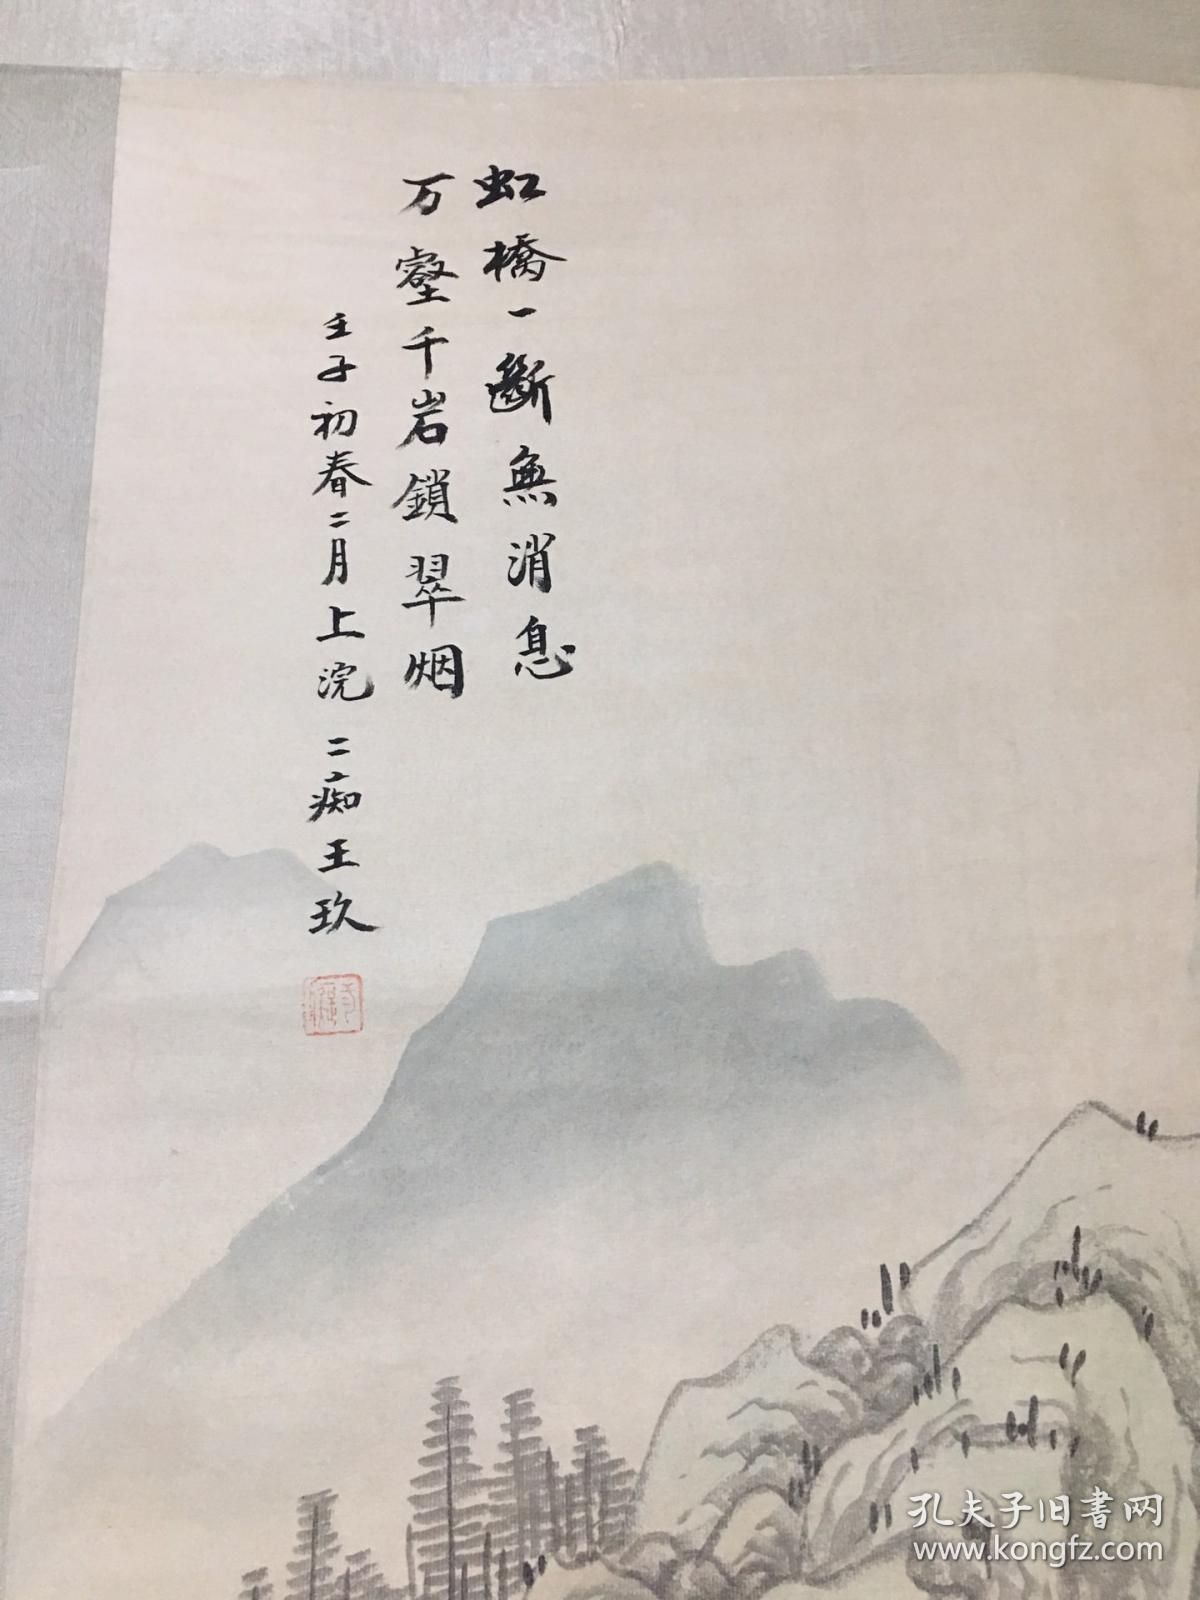 虹橋一斷無消息
万壑千岩鎖翠烟
壬子初春二月上浣 二痴王玖
孔夫子旧書网
www.kongfz.com